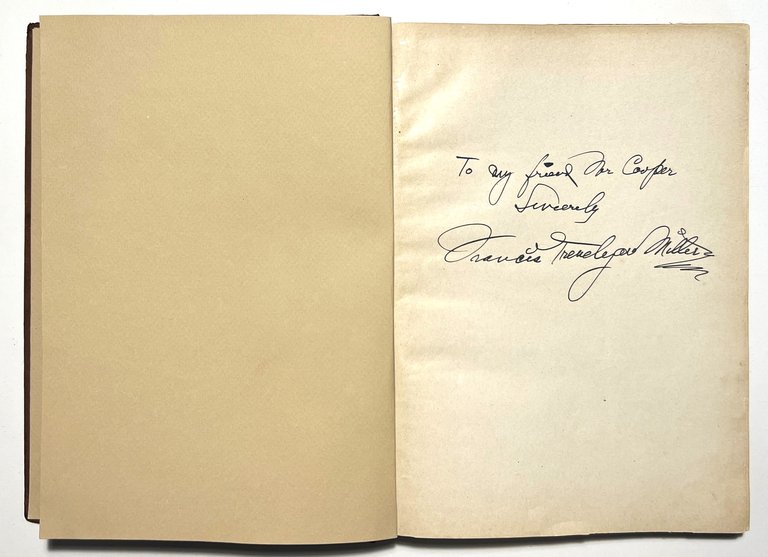 To my friend Mr Cooper
Sincerely
Francis Trevelyan Miller